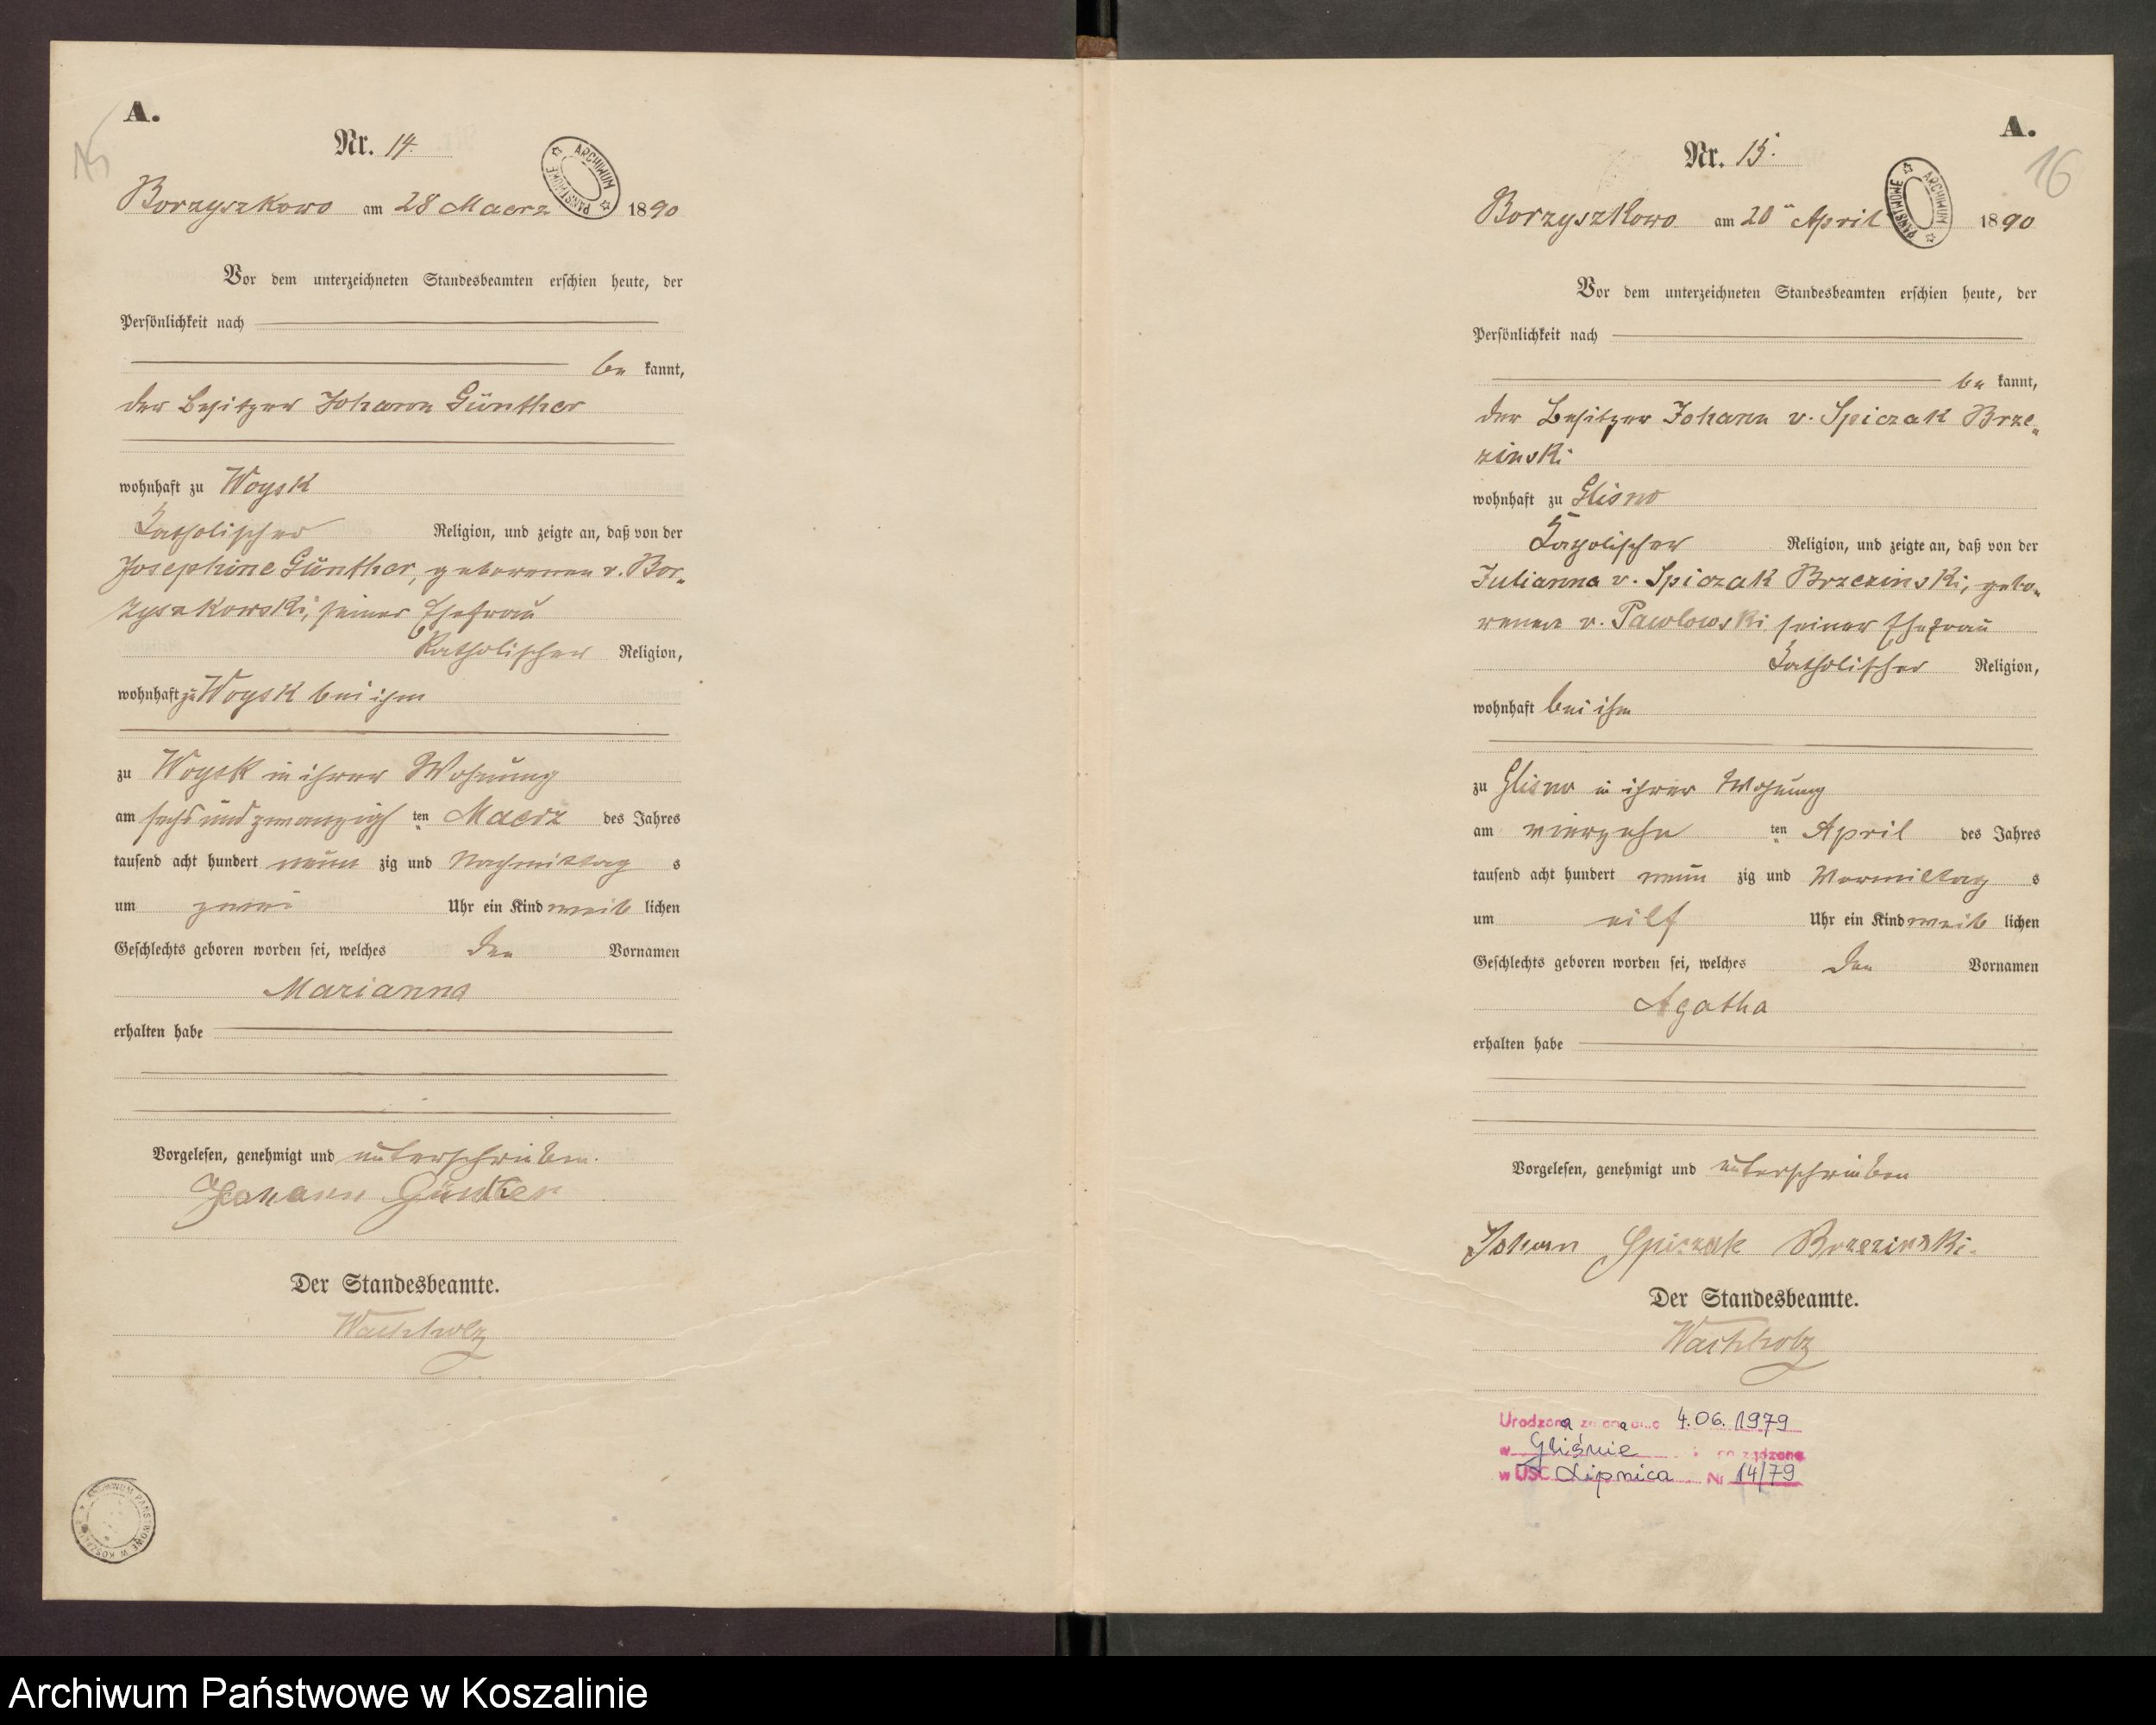 A.
15
Nr. 14.
ARCHIWUM PAŃSTWOWE
Borzyszkowo am 28 Maerz 1890
Vor dem unterzeichneten Standesbeamten erschien heute, der
Persönlichkeit nach
be kannt,
der Besitzer Johann Günther
wohnhaft zu Woysk
katholischer Religion, und zeigte an, daß von der
Josephine Günther, geborenen v. Bor-
zyszkowski, seiner Ehefrau
katholischer Religion,
wohnhaft zu Woysk bei ihm
zu Woysk in ihrer Wohnung
am sechs und zwanzigsten Maerz des Jahres
tausend acht hundert neun zig und Nachmittag s
um zwei Uhr ein Kind weib lichen
Geschlechts geboren worden sei, welches den Vornamen
Marianna
erhalten habe
Vorgelesen, genehmigt und unterschrieben.
Johann Günther
Der Standesbeamte.
Wachholz
ARCHIWUM PAŃSTWOWE W KOSZALINIE
A.
16
Nr. 15.
ARCHIWUM PAŃSTWOWE
Borzyszkowo am 20ten April 1890
Vor dem unterzeichneten Standesbeamten erschien heute, der
Persönlichkeit nach
be kannt,
der Besitzer Johann v. Spiczak Brze-
zinski
wohnhaft zu Glisno
katholischer Religion, und zeigte an, daß von der
Julianna v. Spiczak Brzezinski, gebo-
renen v. Pawlowski seiner Ehefrau
katholischer Religion,
wohnhaft bei ihm
zu Glisno in ihrer Wohnung
am vierzehn ten April des Jahres
tausend acht hundert neun zig und Vormittag s
um eilf Uhr ein Kind weib lichen
Geschlechts geboren worden sei, welches den Vornamen
Agatha
erhalten habe
Vorgelesen, genehmigt und unterschrieben
Johann Spiczak Brzezinski.
Der Standesbeamte.
Wachholz
Urodzona 4.06.1979
w Gliśnie
w USC Lipnica Nr 14/79
Archiwum Państwowe w Koszalinie